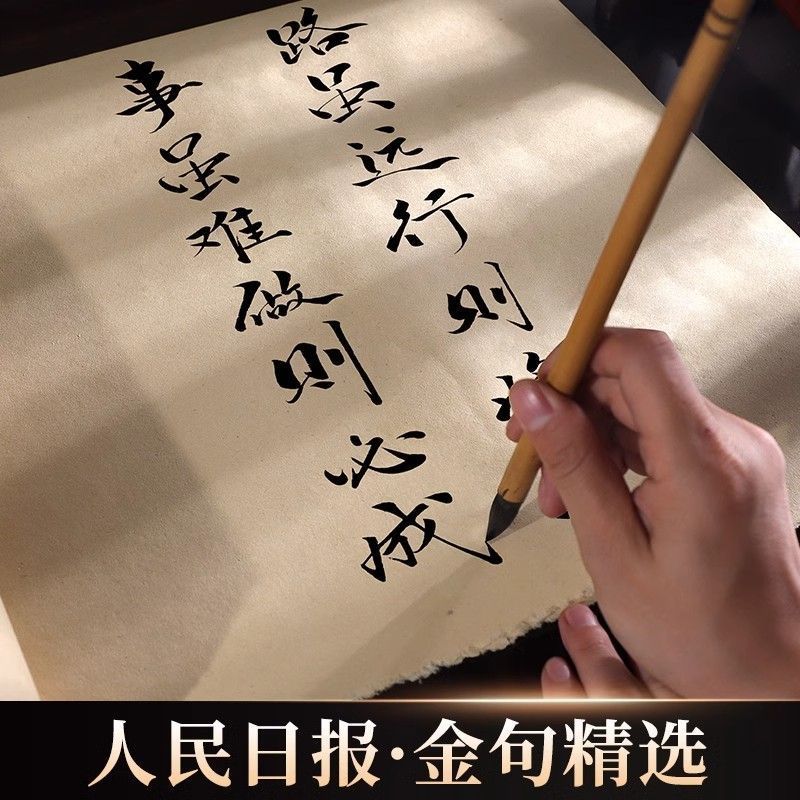 路虽远行则
事虽难做则必成
人民日报·金句精选